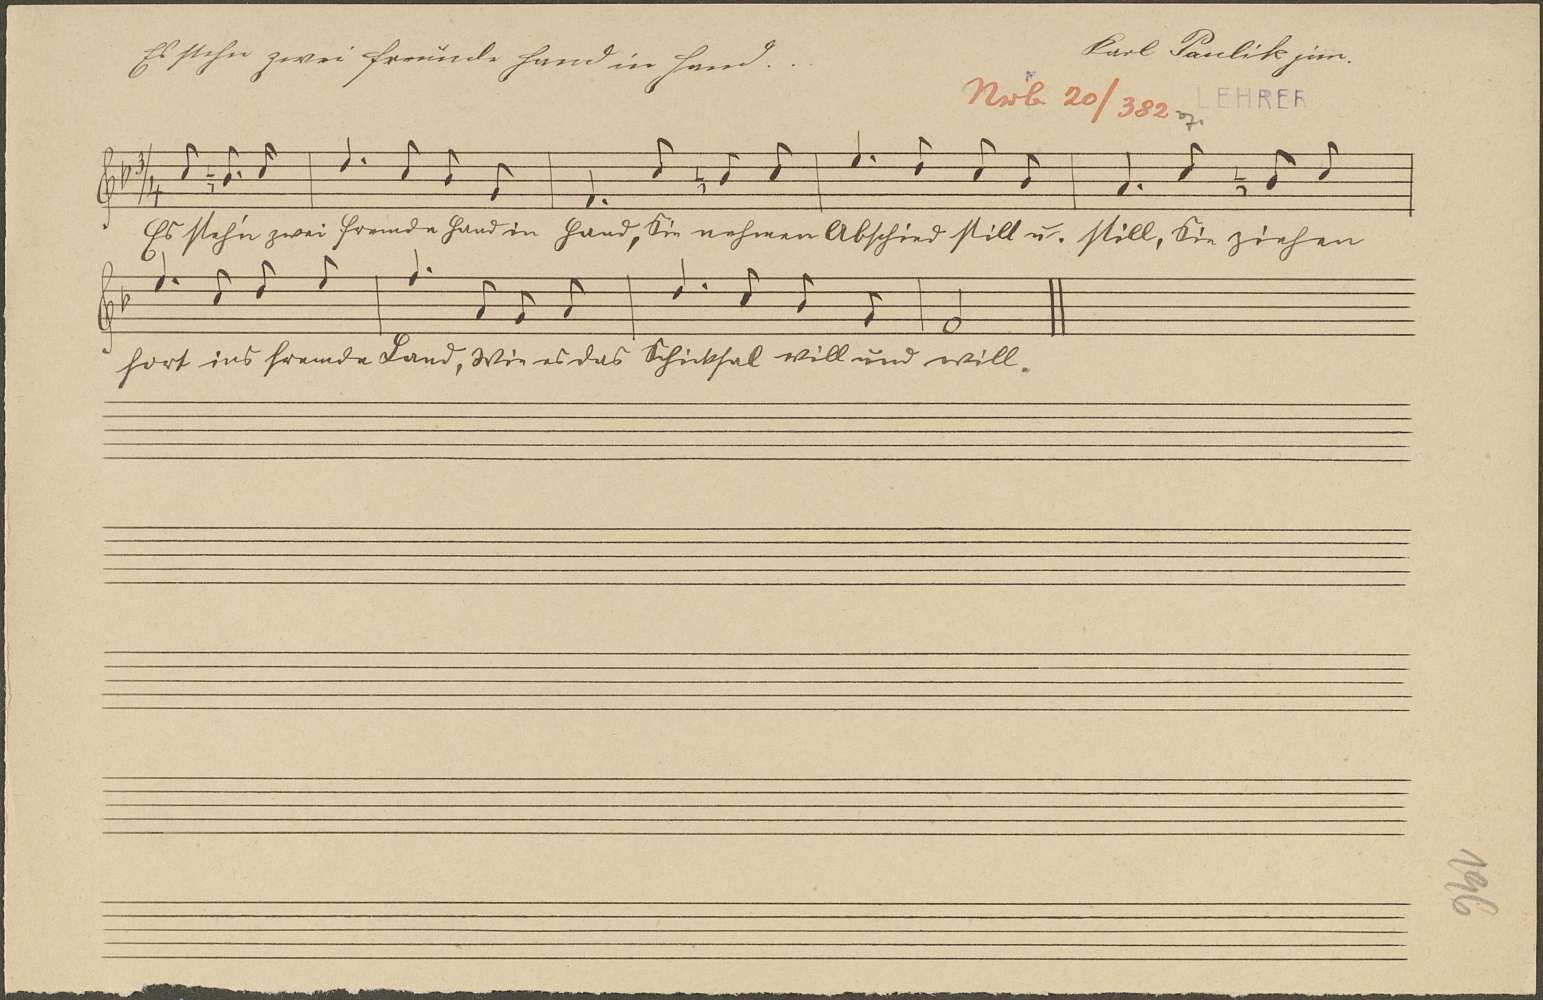 Es stehn zwei Freunde Hand in Hand. . .
Karl Paulik jun.
Nrb 20/382
LEHRER
3/4
Es steh'n zwei Freunde Hand in Hand, Sie nehmen Abschied still u. still, Sie ziehen
fort ins fremde Land, Wie es das Schicksal will und will.